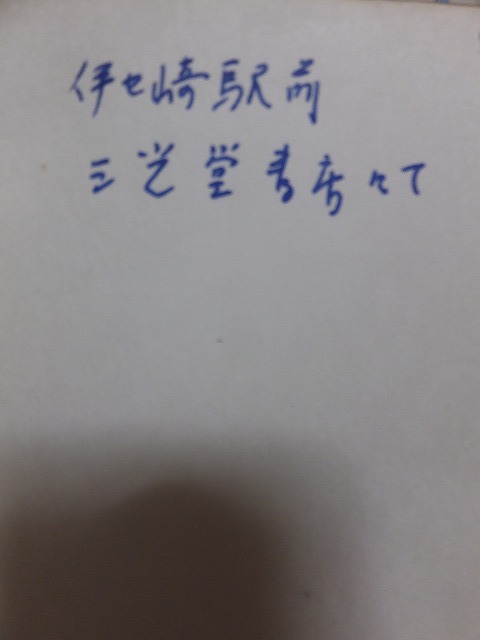 伊セ崎駅前
三光堂書店にて